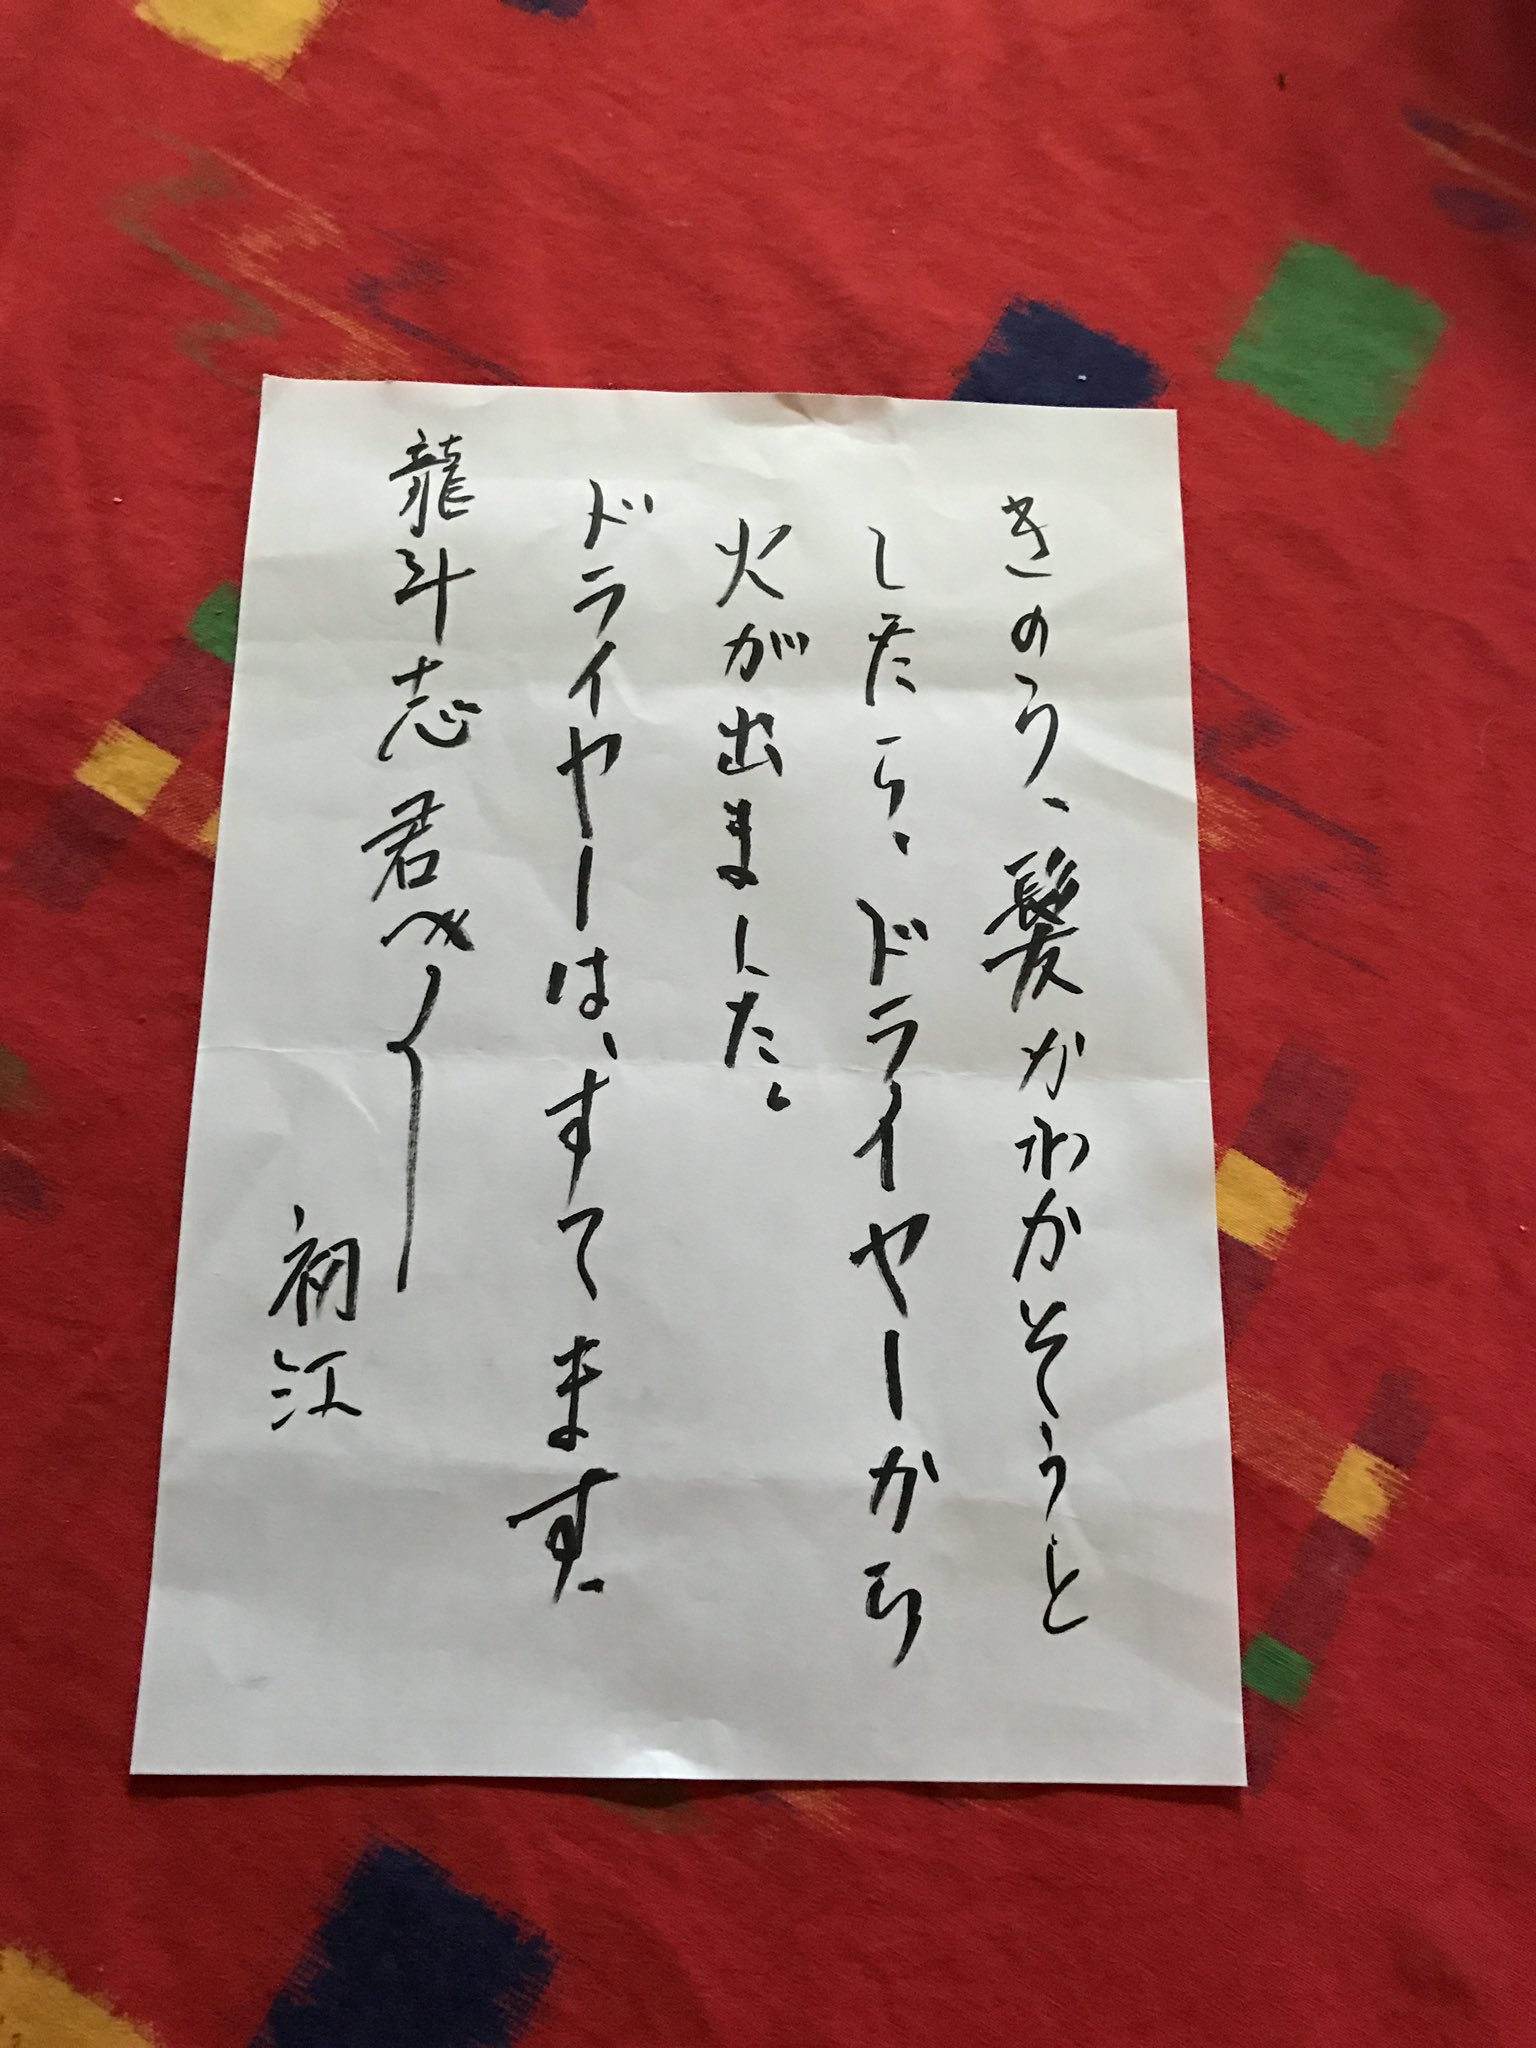 きのう、髪がかわかそうと
したら、ドライヤーから
火が出ました。
ドライヤーは、すてます。
龍斗志君へ
初江